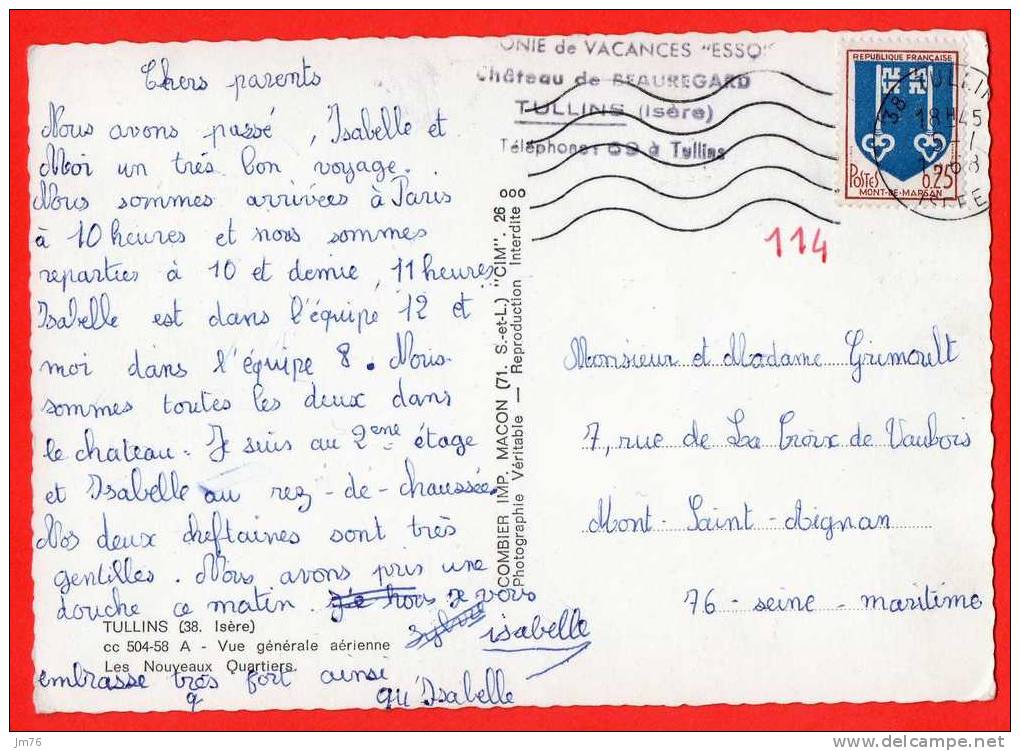 Chers parents
Nous avons passé, Isabelle et
Moi un très bon voyage.
Nous sommes arrivées à Paris
à 10 heures et nous sommes
reparties à 10 et demie, 11 heures
Isabelle est dans l'équipe 12 et
moi dans l'équipe 8. Nous
sommes toutes les deux dans
le chateau. Je suis au 2ème étage
et Isabelle au rez-de-chaussée.
Nos deux cheftaines sont très
gentilles. Nous avons pris une
douche ce matin. je vous
embrasse très fort ainsi
qu'Isabelle
Sylvie isabelle
TULLINS (38. Isère)
cc 504-58 A - Vue générale aérienne
Les Nouveaux Quartiers.
COMBIER IMP. MACON (71. S.-et-L.) "CIM". 26 000
Photographie Véritable — Reproduction Interdite
ONIE de VACANCES "ESSO"
Château de BEAUREGARD
TULLINS (Isère)
Téléphone: 69 à Tullins
REPUBLIQUE FRANÇAISE
POSTES 0,25
MONT-DE-MARSAN
38 TULLIN
18H45
68
114
Monsieur et Madame Grimoult
7, rue de La Croix de Vaubois
Mont-Saint-Aignan
76 - seine - maritime
jm76
www.delcampe.net